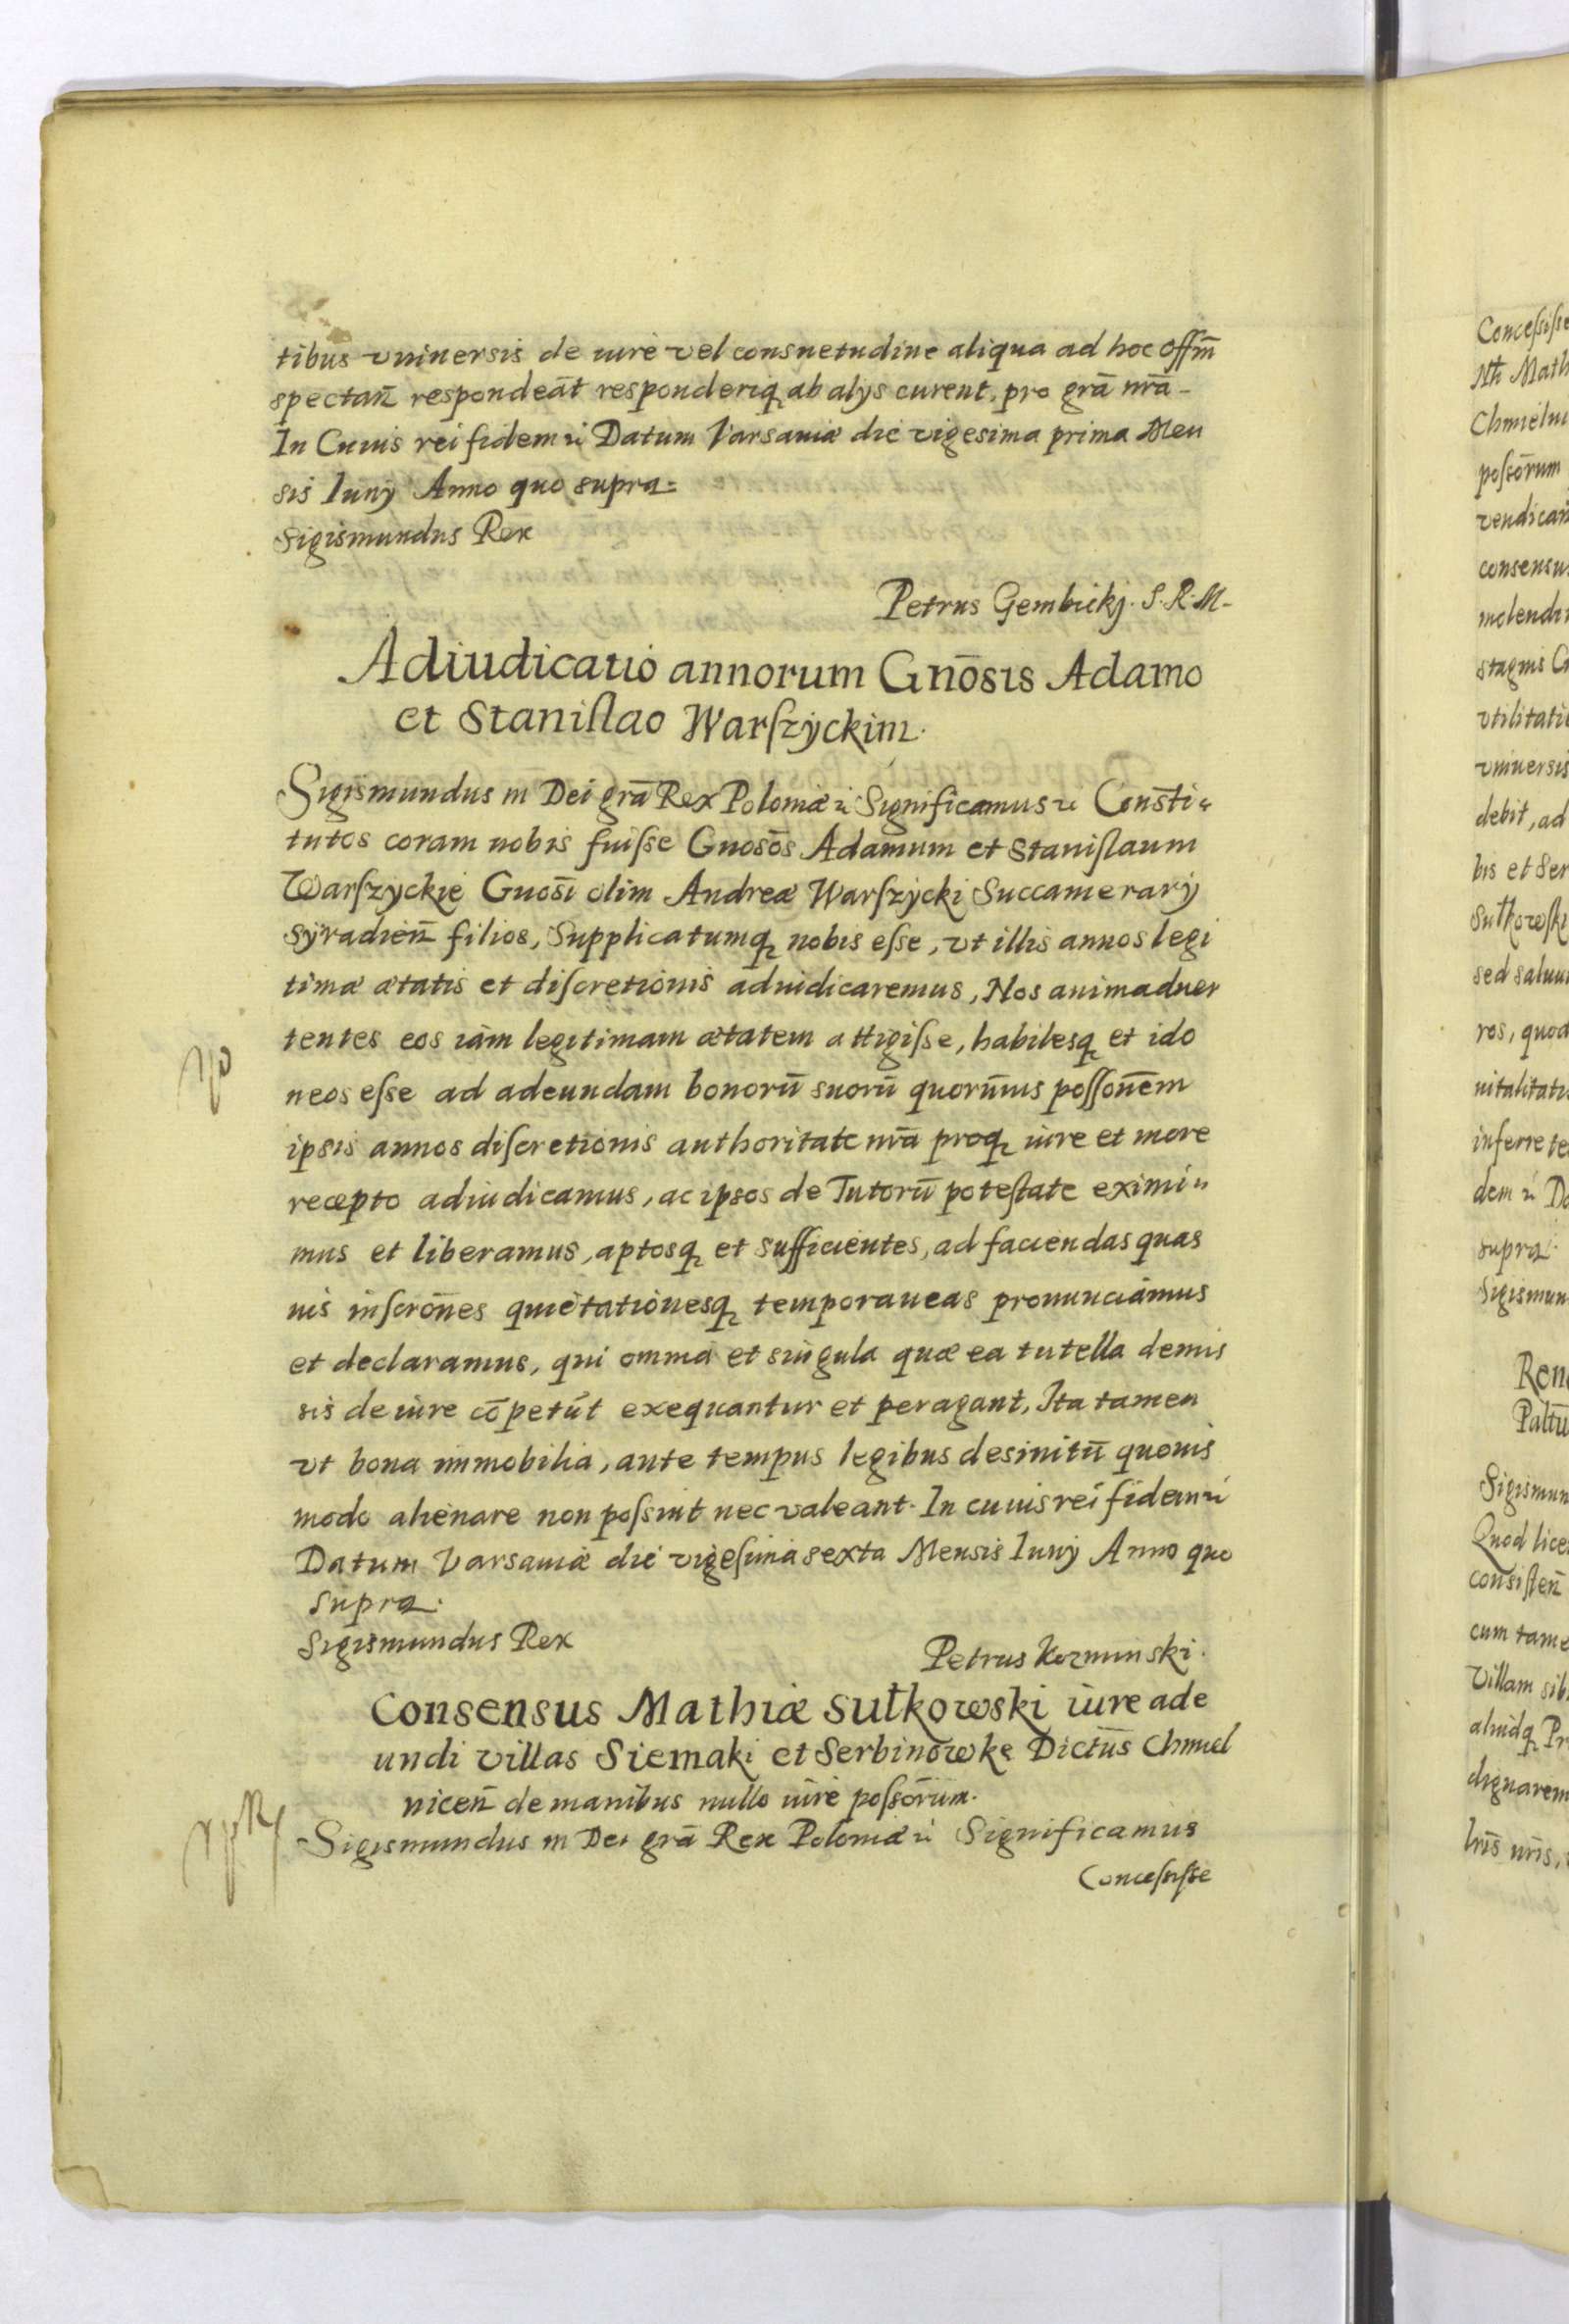 tibus vniuersis de iure vel consuetudine aliqua ad hoc offm̄
spectan̄ respondeāt responderiq; ab alys curent, pro grā nr̄ā -
In Cuius rei fidem rc̄ Datum Varsaviæ die vigesima prima Men
sis Iuny Anno quo supra.
Sigismundus Rex
Petrus Gembickj. S. R. M.
Adiudicatio annorum Gnōsis Adamo
et Stanislao Warſzyckim.
Sigismundus III Dei grā Rex Poloniæ rc̄ Significamus rc̄ Consti-
tutos coram nobis fuiſse Gnosōs Adamum et Staniſlaum
Warſzyckie Gnosi olim Andreæ Warſzycki Succamerarÿ
Syradien̄ filios, Supplicatumq; nobis eſse, vt illis annos legi
timæ ætatis et diſcretionis adiudicaremus, Nos animaduer
tentes eos iam legitimam ætatem attigiſse, habilesq; et ido
neos eſse ad adeundam bonorū suorū quorūuis poſſonēm
ipsis annos diſcretionis authoritate nr̄a proq; iure et more
recepto adiudicamus, ac ipsos de Tutorū poteſtate eximi-
mus et liberamus, aptosq; et sufficientes, ad faciendas quas
uis inſcrōnes quietationesq; temporaneas pronunciamus
et declaramus, qui omnia et singula quæ ea tutella demis
sis de iure cōpetūt exequantur et peragant, Ita tamen
vt bona immobilia, ante tempus legibus desinitū quouis
modo alienare non poſsint nec valeant. In cuius rei fidem rc̄
Datum Varsaviæ die vigeſima sexta Mensis Iuny Anno quo
supra.
Sigismundus Rex
Petrus Kozminski.
Consensus Mathiæ Sułkowski iure ade
undi villas Siemaki et Serbinowkę Dictūs Chmiel
nicen̄ de manibus nullo iure poſsōrum.
Sigismundus III Dei grā Rex Poloniæ rc̄ Significamus
Conceſsiſse
Conceſsiſse
Math
poſsōrum
vendican̄
consensu
molendi
stagnis
vtilitati
vniuersis
debit, ad
bis et Ser
Sułkowſki
sed saluu
ros, quod
uitalitati
inferre te
dem rc̄ Da
supra.
Sigismun
Sigismun
Quod lice
consiſten̄
cum tame
Villam sib
aliudq; Pr
dignarem